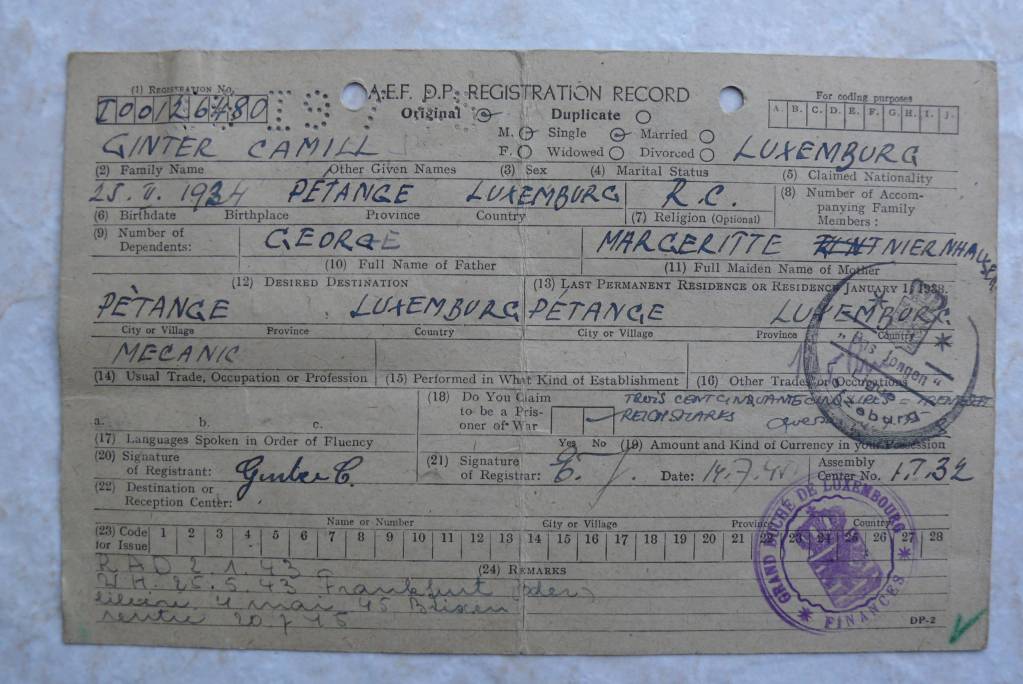 (1) REGISTRATION NO.
I00126480
A.E.F. D.P. REGISTRATION RECORD
Original Duplicate
For coding purposes
A. B. C. D. E. F. G. H. I. J.
M. Single Married
F. Widowed Divorced
GINTER CAMILL LUXEMBURG
(2) Family Name Other Given Names (3) Sex (4) Marital Status (5) Claimed Nationality
1934 PÉTANGE LUXEMBURG R.C.
(6) Birthdate Birthplace Province Country (7) Religion (Optional) (8) Number of Accompanying Family Members:
(9) Number of Dependents:
GEORGE MARGERITTE
(10) Full Name of Father (11) Full Maiden Name of Mother
(12) DESIRED DESTINATION (13) LAST PERMANENT RESIDENCE OR RESIDENCE JANUARY 1, 1938.
PÉTANGE LUXEMBURG PÉTANGE LUXEMBURG
City or Village Province Country City or Village Province Country
MECANIC
(14) Usual Trade, Occupation or Profession (15) Performed in What Kind of Establishment (16) Other Trades or Occupations
a. b. c.
(17) Languages Spoken in Order of Fluency
(18) Do You Claim to be a Prisoner of War
Yes No
REICHSMARKS
(19) Amount and Kind of Currency in your Possession
(20) Signature of Registrant: Ginter C.
(21) Signature of Registrar:
Date: 14.7.45
Assembly Center No. I.T.32
(22) Destination or Reception Center:
Name or Number City or Village Province Country
(23) Code for Issue 1 2 3 4 5 6 7 8 9 10 11 12 13 14 15 16 17 18 19 20 21 22 23 24 25 26 27 28
(24) REMARKS
RAD 2.1.43
W.H. 25.5.43 Frankfurt (Oder)
4 mai 45 Brixen
rentré 20 7 45
GRAND DUCHÉ DE LUXEMBOURG
FINANCES
DP-2